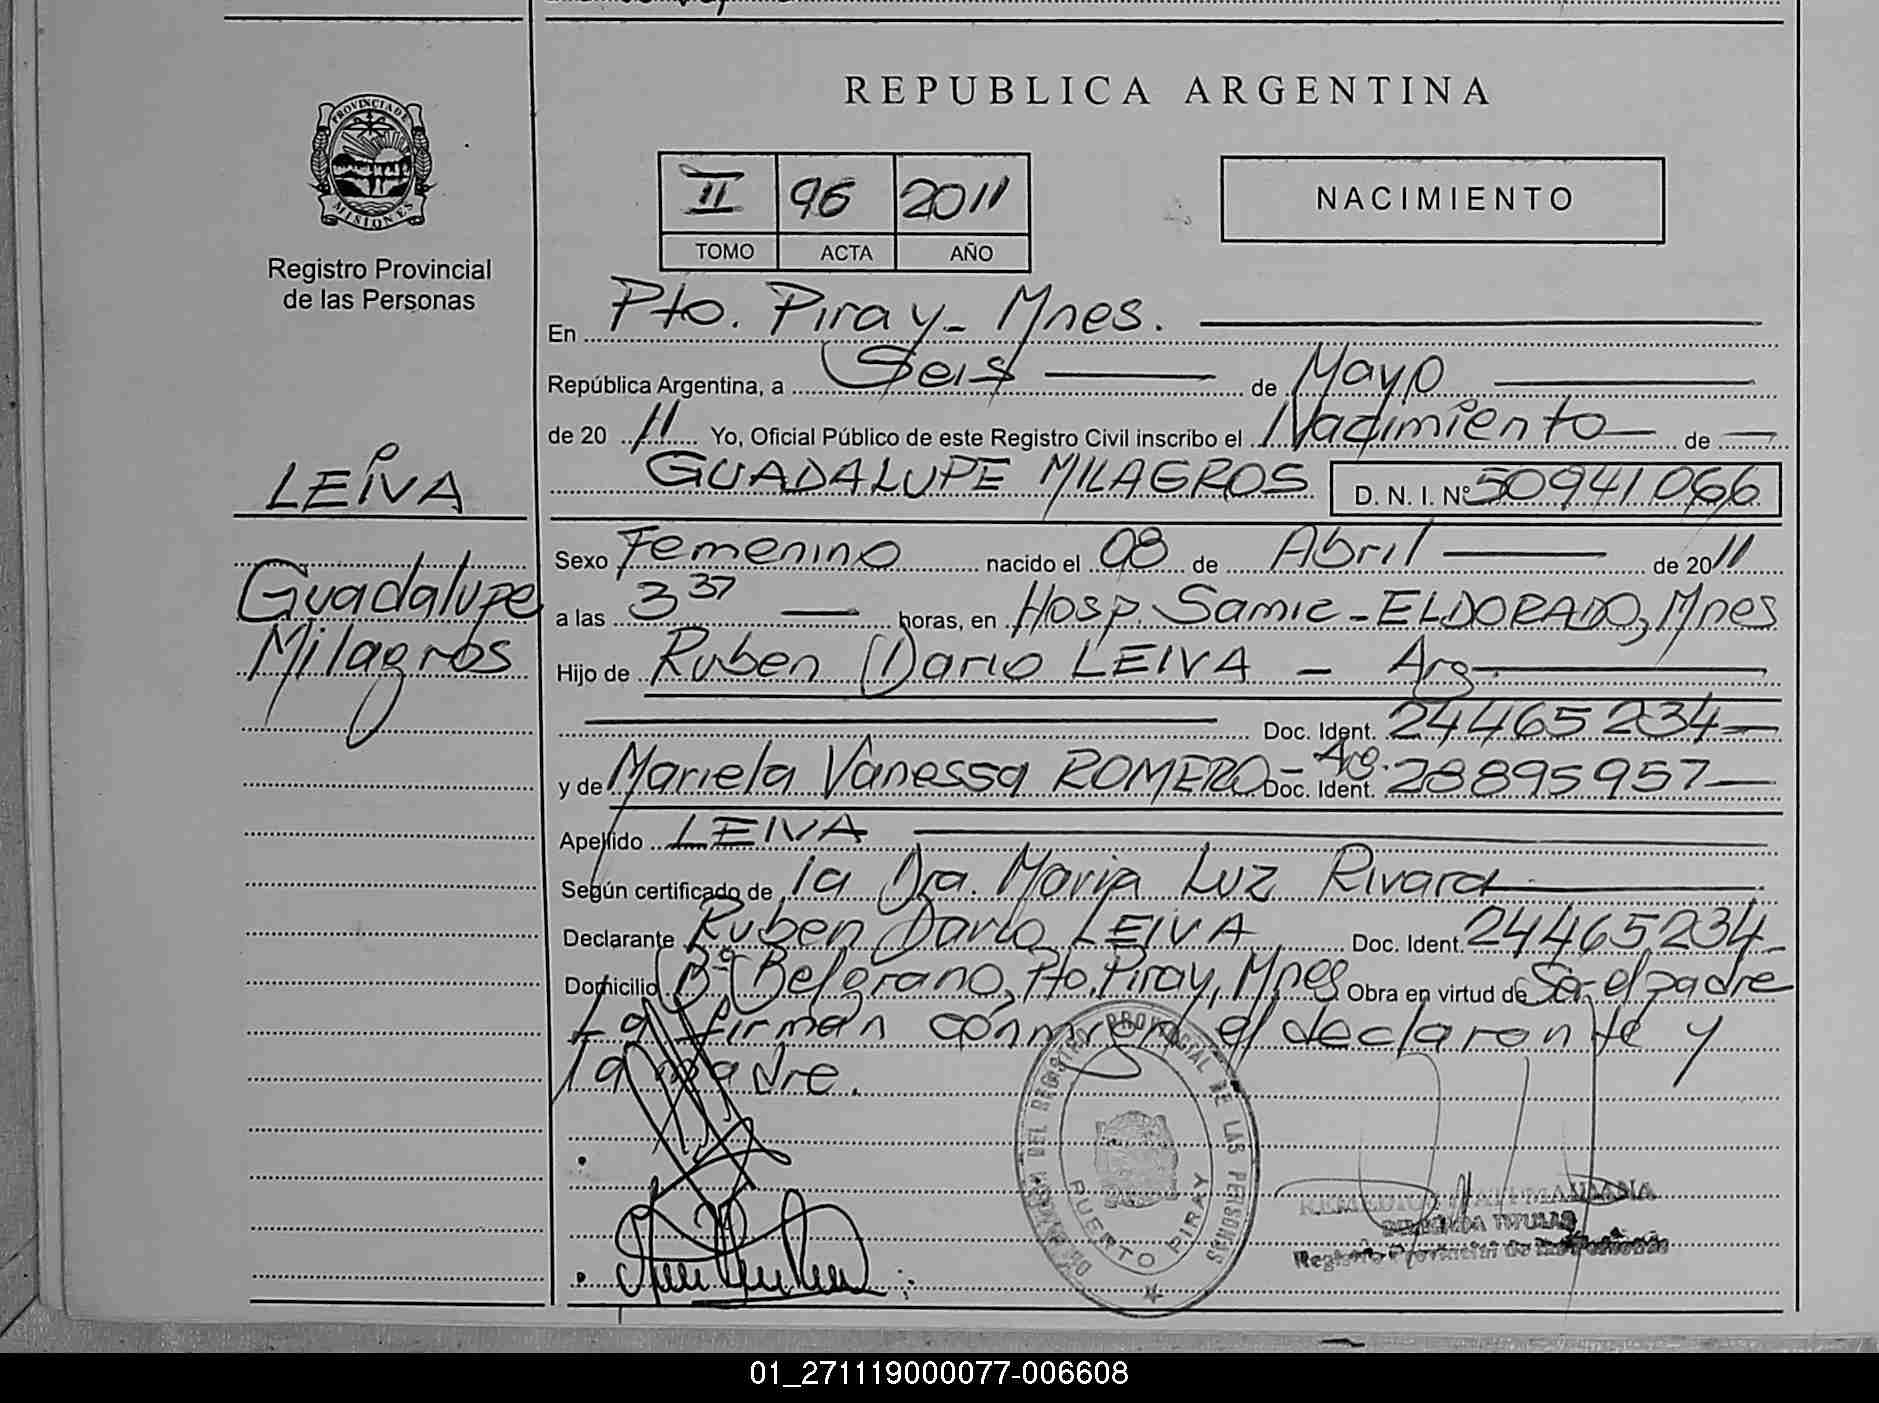 REPUBLICA ARGENTINA
PROVINCIA DE MISIONES
Registro Provincial
de las Personas
II 96 2011
TOMO ACTA AÑO
NACIMIENTO
En Pto. Piray - Mnes.
República Argentina, a Seis de Mayo
de 20 11 Yo, Oficial Público de este Registro Civil inscribo el Nacimiento de
GUADALUPE MILAGROS D. N. I. Nº 50941066
LEIVA
Guadalupe
Milagros
Sexo Femenino nacido el 08 de Abril de 2011
a las 3 37 horas, en Hosp. Samic - ELDORADO, Mnes
Hijo de Ruben Dario LEIVA - Arg
Doc. Ident. 24465234
y de Mariela Vanessa ROMERO - Arg. Doc. Ident. 28895957
Apellido LEIVA
Según certificado de la Dra. Maria Luz Rivara
Declarante Ruben Dario LEIVA Doc. Ident. 24465234
Domicilio Bº Belgrano, Pto. Piray, Mnes Obra en virtud de Ser el padre
La firman conmigo el declarante y
la madre.
REGISTRO PROVINCIAL DE LAS PERSONAS
PUERTO PIRAY
TITULAR
Registro Provincial de las Personas
01_271119000077-006608